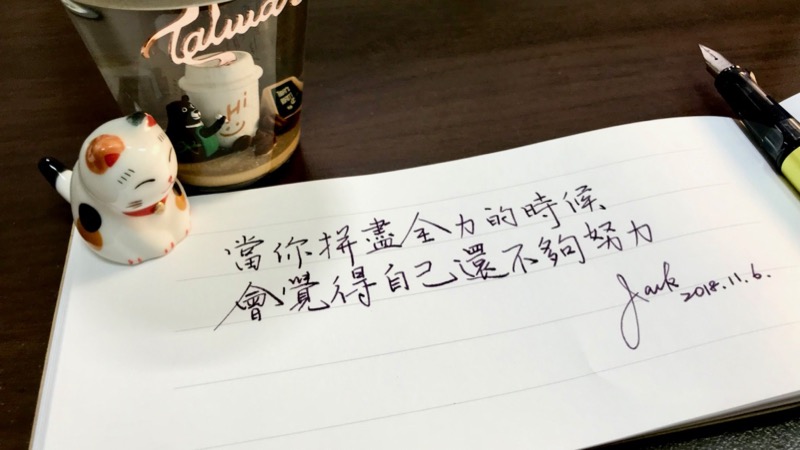 Taiwan
Hi
當你拼盡全力的時候、
會覺得自己還不夠努力
Jack 2018.11.6.